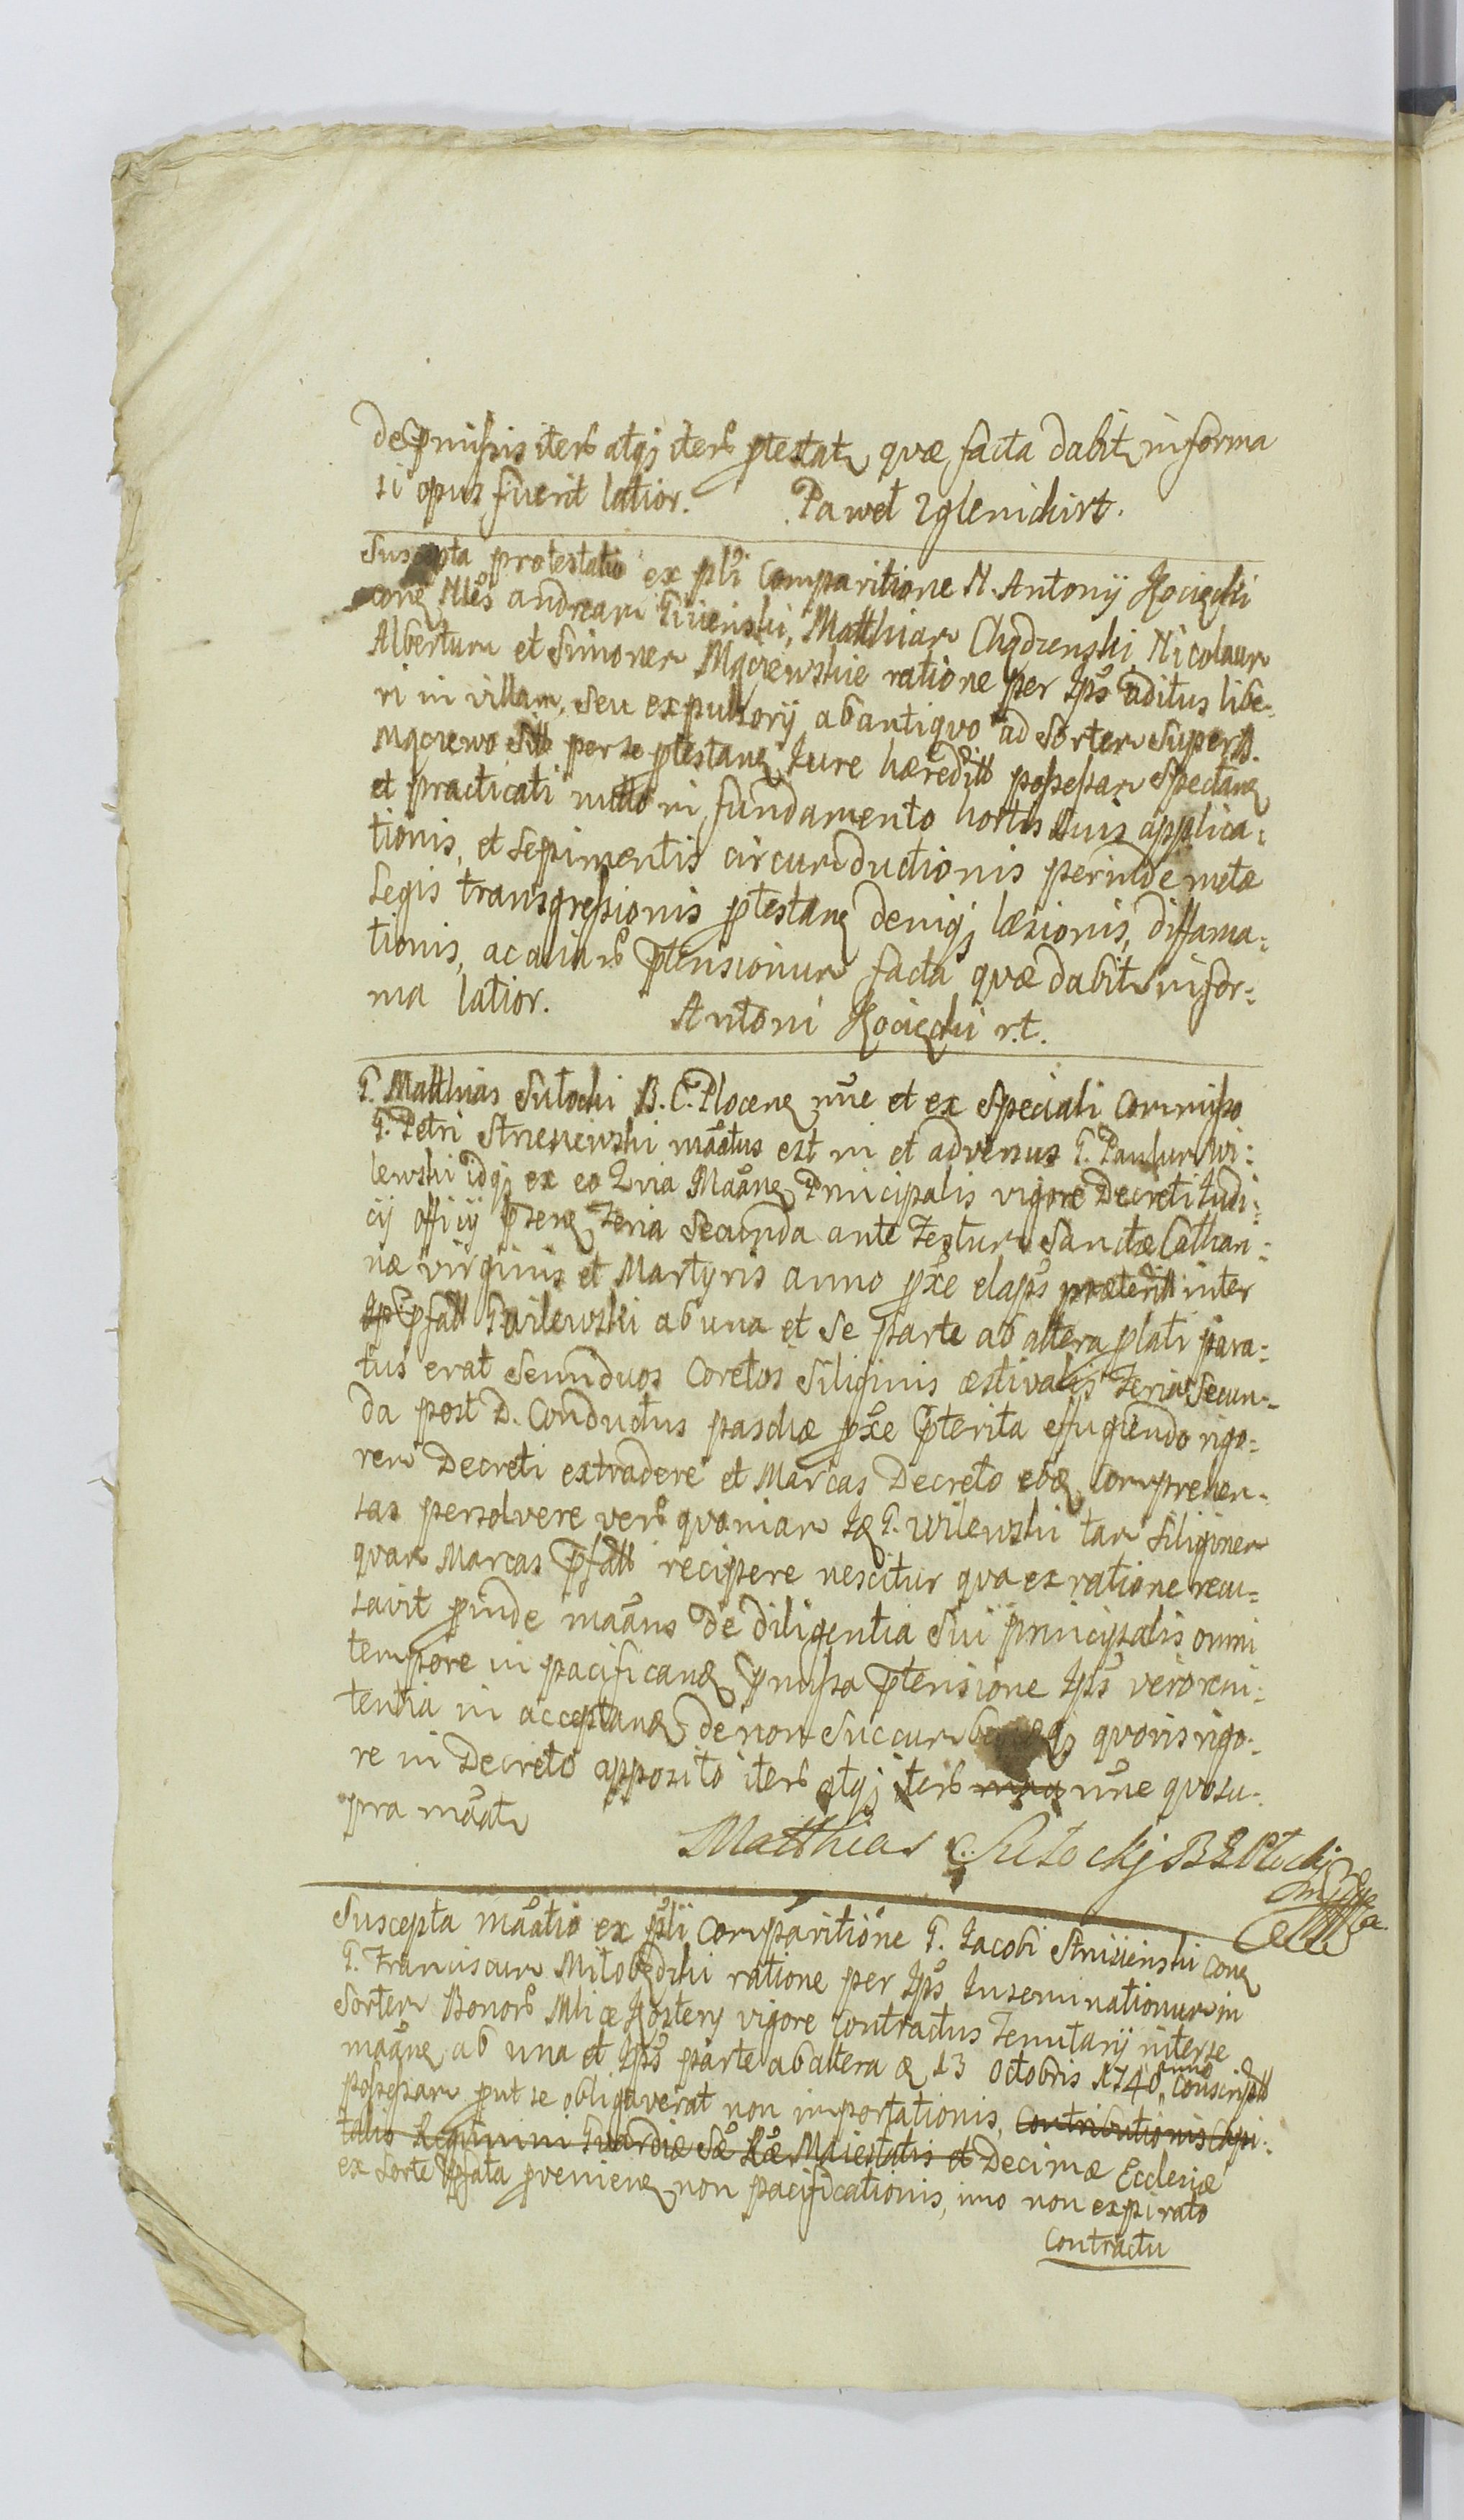 de pmissis iterb atqj iterb ptestatr quæ facta dabitr in forma
si opus fuerit latior. Paweł Zglenicki rt.
Suscepta protestatio ex pli Comparitione N. Antonij Kocięcki
conę Nles andream Giżenski, Matthiam Chądzenski Nicolaum
Albertum et Simonem Mączewskie ratione per Ips aditus libe=
ri in villam, seu expulsorij ab antiquo ad Sortem Supers
Mączewo sitt per se ptestanę Jure hæreditt possessam Spectanę
et practicati nullo in fundamento hortis suis applica=
tionis, et sepimentis circumductionis perinde metæ
Legis transgressionis ptestanę deniqj læsionis, diffama=
tionis, ac aliarb ptensionum facta quæ dabitr in for=
ma latior. Antoni Kocięcki r.t.
G. Matthias Sutocki B. C. Plocenę nne et ex Speciali Commisso
G. Petri Strzeżewski maatus est in et adversus G. Paulum Wi=
lewski idqj ex eo Quia Maanę Principalis vigore Decreti Judi=
cij officij psenę Feria Secunda ante Festum Sanctæ Cathari=
næ virginis et Martyris anno pxe elaps præteritt inter
pfatt Wilewski ab una et Se parte ab altera plati para=
tus erat Semiduos Coretos Siliginis æstivalis Feria Secun=
da post D. Conductus paschæ pxe pterita effugiendo rigo=
rem Decreti extradere et Marcas Decreto eoę Comprehen=
sas persolvere verb quoniam Ię G. Wilewski tam Siliginem
quam Marcas pfatt recipere nescitur qua ex ratione recu=
savit pinde maans de diligentia Sui principalis omni
tempore in pacificanę pmissa ptensione Ips vero reni=
tentia in acceptanę de non Succumbenę qj quovis rigo=
re in Decreto apposito iterb atqj iterb nne quo su=
pra maatr
Matthias Sutockj B Z Płockj
Suscepta maatio ex pli Comparitione G. Jacobi Struiienski Conę
G. Franciscum Miłobędzki ratione per Ips Inseminationum in
Sortem Bonorb Mlicæ Kostery vigore Contractus Tenutarij inter se
maanę ab una et Ips parte ab altera ę 13 Octobris 1740 anno Conscriptt
possessam put se obligaverat non importationis, Contributionis Capi=
talis Regimini Gvardiæ Sæ Ræ Maiestatis et Decimæ Ecclesiæ
ex Sorte pfata pvenienę non pacificationis, imo non expirato
Contractu